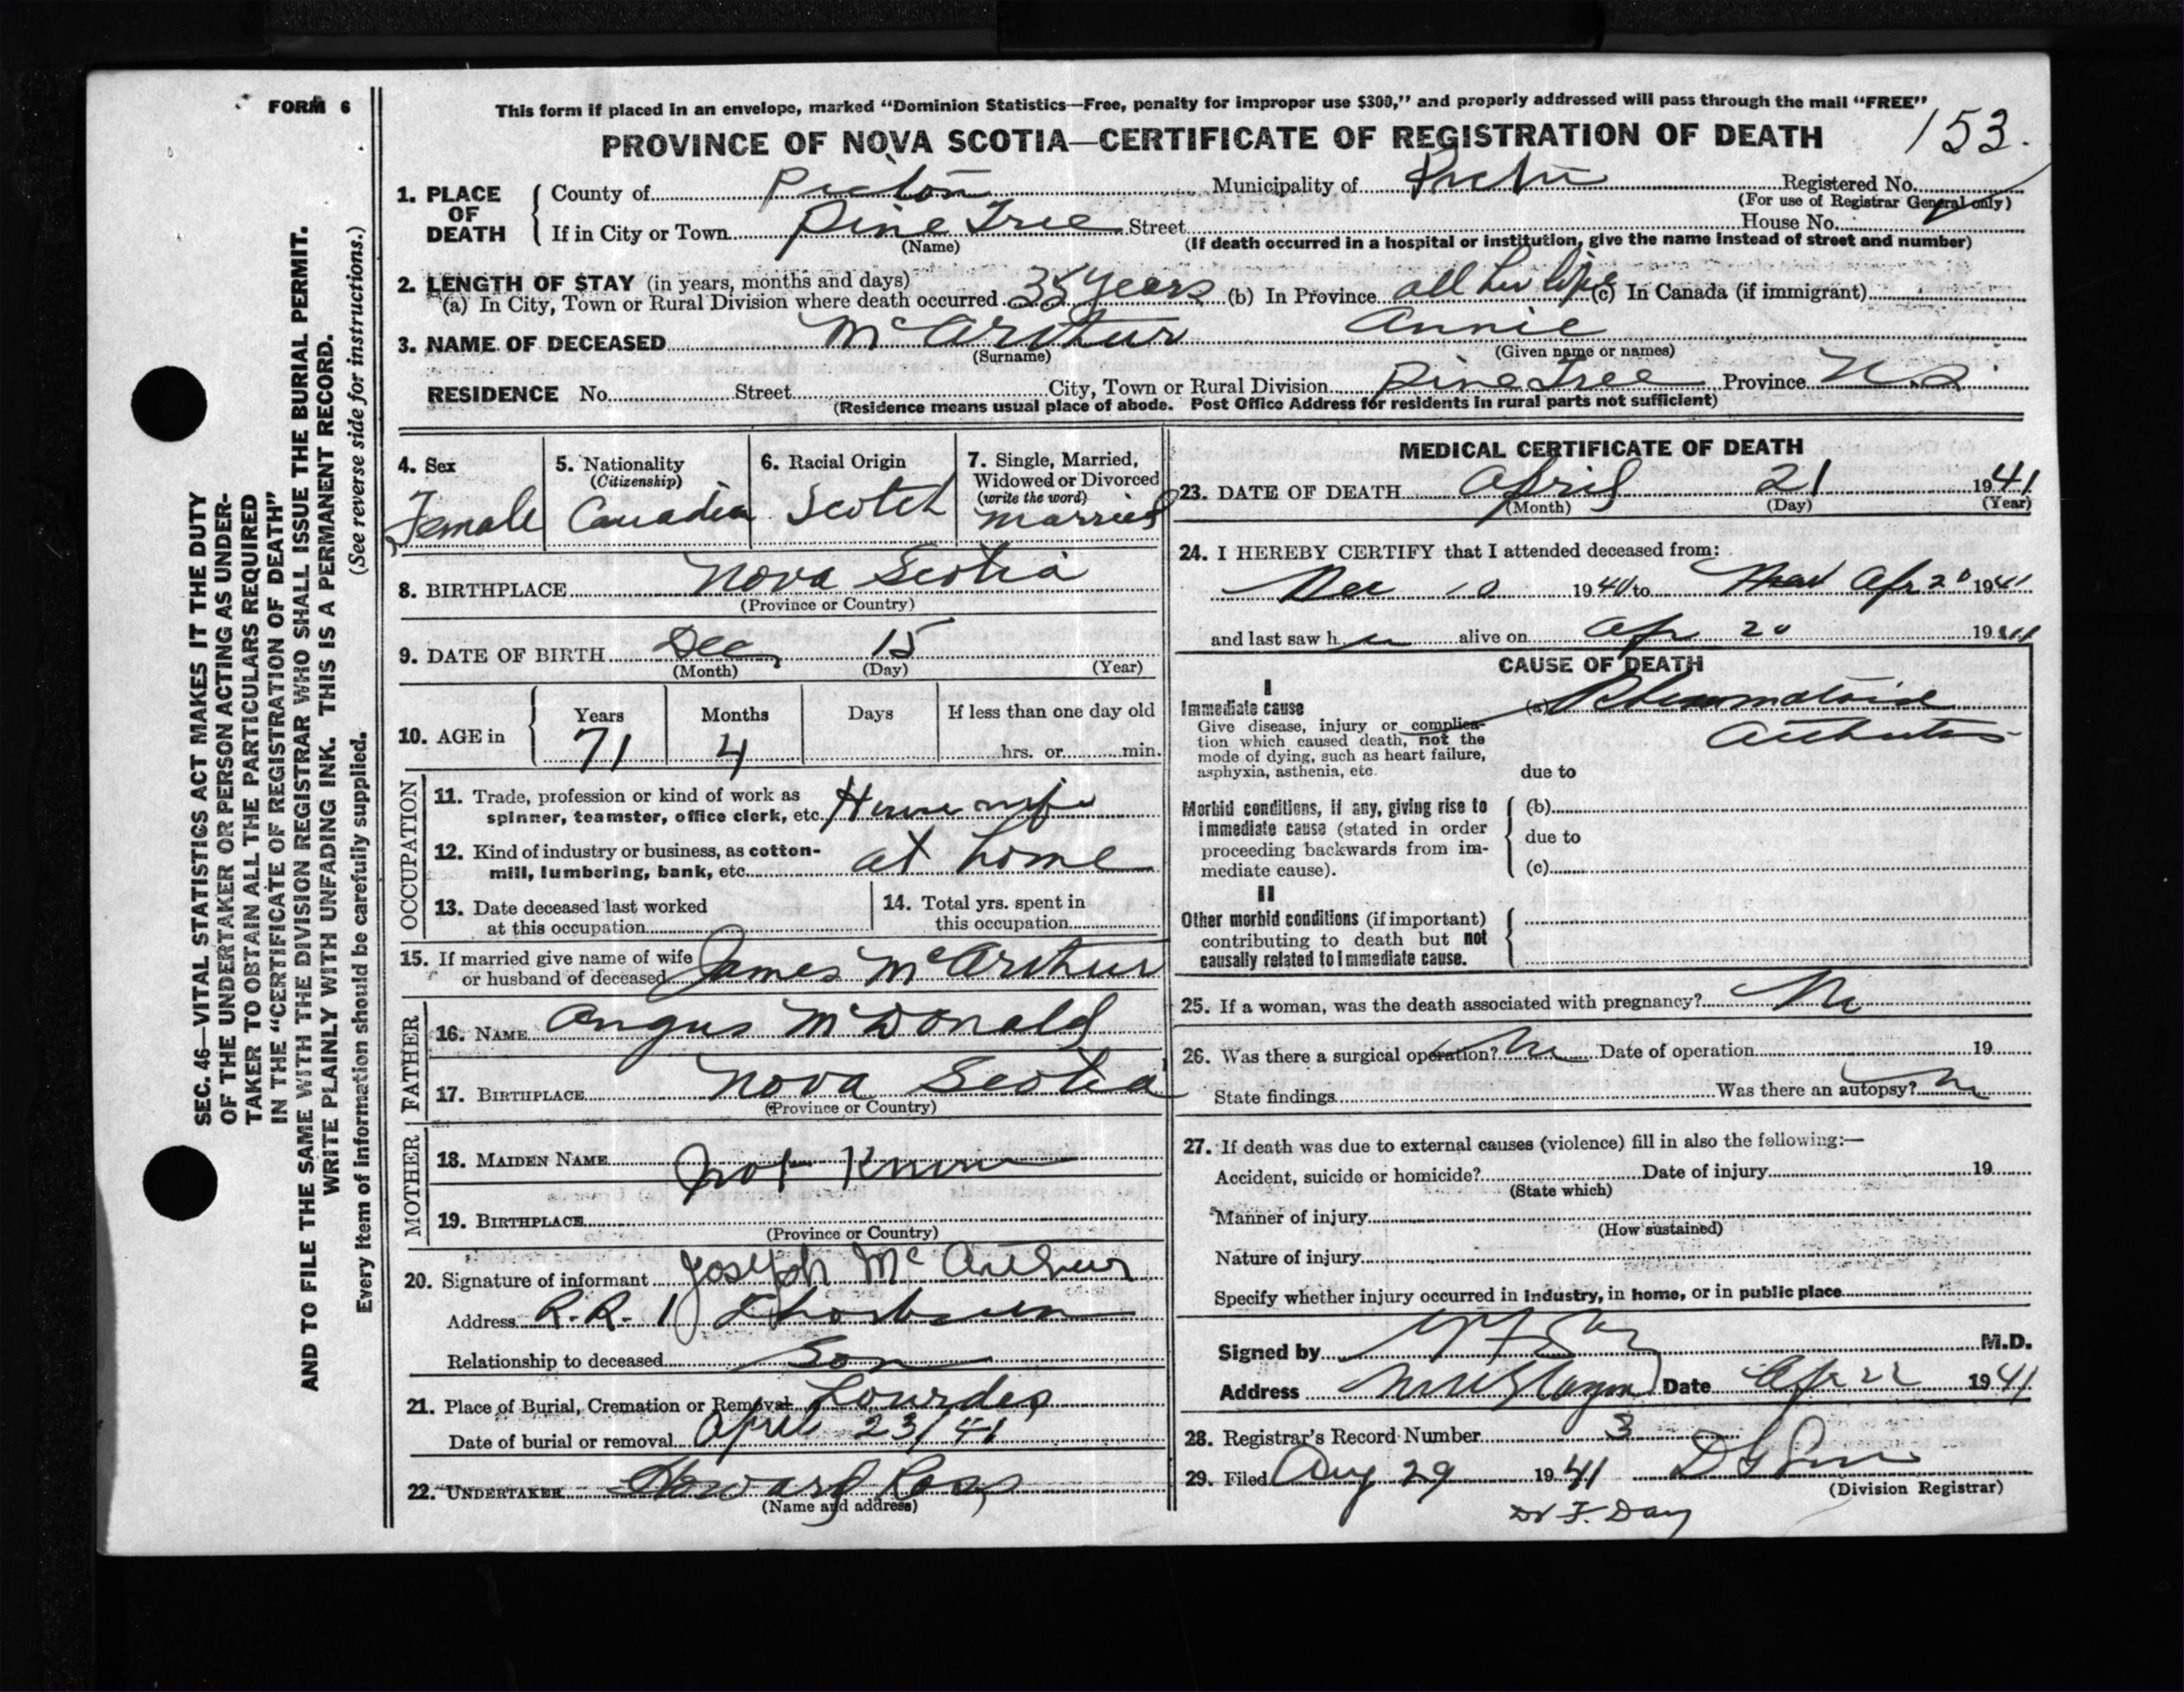 FORM 6
This form if placed in an envelope, marked "Dominion Statistics—Free, penalty for improper use $300," and properly addressed will pass through the mail "FREE"
PROVINCE OF NOVA SCOTIA—CERTIFICATE OF REGISTRATION OF DEATH
153.
1. PLACE OF DEATH County of Pictou Municipality of Pictou Registered No.
(For use of Registrar General only)
If in City or Town Pine Tree Street House No.
(Name) (If death occurred in a hospital or institution, give the name instead of street and number)
2. LENGTH OF STAY (in years, months and days)
(a) In City, Town or Rural Division where death occurred 35 years (b) In Province all her life (c) In Canada (if immigrant)
3. NAME OF DECEASED McArthur Annie
(Surname) (Given name or names)
RESIDENCE No. Street City, Town or Rural Division Pine Tree Province N.S.
(Residence means usual place of abode. Post Office Address for residents in rural parts not sufficient)
4. Sex
Female
5. Nationality
(Citizenship)
Canadian
6. Racial Origin
Scotch
7. Single, Married,
Widowed or Divorced
(write the word)
Married
8. BIRTHPLACE Nova Scotia
(Province or Country)
9. DATE OF BIRTH Dec 15
(Month) (Day) (Year)
10. AGE in Years Months Days If less than one day old
71 4 hrs. or min.
OCCUPATION
11. Trade, profession or kind of work as
spinner, teamster, office clerk, etc. House wife
12. Kind of industry or business, as cotton-
mill, lumbering, bank, etc. at home
13. Date deceased last worked
at this occupation
14. Total yrs. spent in
this occupation
15. If married give name of wife
or husband of deceased James McArthur
FATHER
16. NAME Angus McDonald
17. BIRTHPLACE Nova Scotia
(Province or Country)
MOTHER
18. MAIDEN NAME Not Known
19. BIRTHPLACE
(Province or Country)
20. Signature of informant Joseph McArthur
Address R.R. 1 Thorburn
Relationship to deceased Son
21. Place of Burial, Cremation or Removal Lourdes
Date of burial or removal April 23/41
22. UNDERTAKER Howard Ross
(Name and address)
MEDICAL CERTIFICATE OF DEATH
23. DATE OF DEATH April 21 1941
(Month) (Day) (Year)
24. I HEREBY CERTIFY that I attended deceased from:
Dec 10 1940 to Apr 20 1941
and last saw her alive on Apr 20 1941
CAUSE OF DEATH
I
Immediate cause (a) Rheumatoid
Arthritis
Give disease, injury or complica-
tion which caused death, not the
mode of dying, such as heart failure,
asphyxia, asthenia, etc.
due to
Morbid conditions, if any, giving rise to (b)
immediate cause (stated in order
proceeding backwards from im-
mediate cause).
due to
(c)
II
Other morbid conditions (if important)
contributing to death but not
causally related to immediate cause.
25. If a woman, was the death associated with pregnancy? No
26. Was there a surgical operation? No Date of operation 19
State findings Was there an autopsy? No
27. If death was due to external causes (violence) fill in also the following:—
Accident, suicide or homicide? Date of injury 19
(State which)
Manner of injury
(How sustained)
Nature of injury
Specify whether injury occurred in industry, in home, or in public place
Signed by M.D.
Address New Glasgow Date Apr 22 1941
28. Registrar's Record Number 3
29. Filed Aug 29 1941
(Division Registrar)
Dr F. Day
SEC. 46—VITAL STATISTICS ACT MAKES IT THE DUTY
OF THE UNDERTAKER OR PERSON ACTING AS UNDER-
TAKER TO OBTAIN ALL THE PARTICULARS REQUIRED
IN THE "CERTIFICATE OF REGISTRATION OF DEATH"
AND TO FILE THE SAME WITH THE DIVISION REGISTRAR WHO SHALL ISSUE THE BURIAL PERMIT.
WRITE PLAINLY WITH UNFADING INK. THIS IS A PERMANENT RECORD.
Every item of information should be carefully supplied. (See reverse side for instructions.)